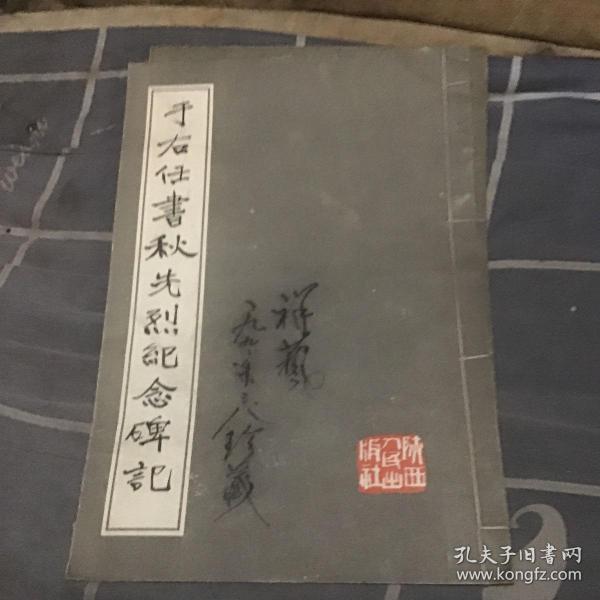 于右任书秋先烈紀念碑記
祥藝
一九九
珍藏
陝西
人民出
版社
孔夫子旧书网
www.kongfz.com